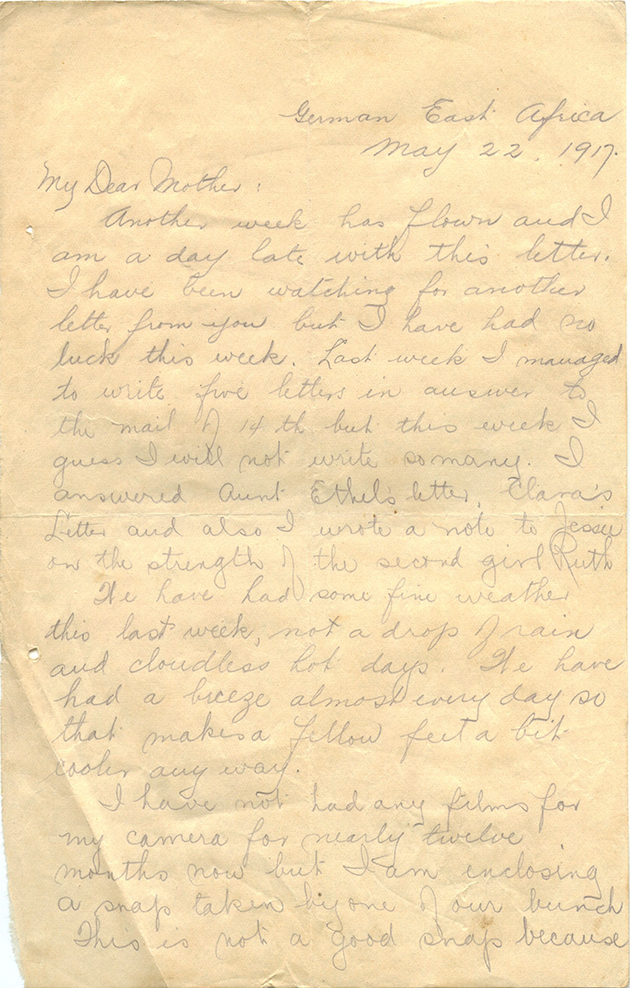 German East Africa
May 22, 1917.
My Dear Mother:
Another week has flown and I
am a day late with this letter.
I have been watching for another
letter from you but I have had no
luck this week. Last week I managed
to write five letters in answer to
the mail of 14th but this week I
guess I will not write so many. I
answered Aunt Ethel's letter, Clara's
Letter and also I wrote a note to Jessie
on the strength of the second girl Ruth
We have had some fine weather
this last week, not a drop of rain
and cloudless hot days. We have
had a breeze almost every day so
that makes a fellow feel a bit
cooler any way.
I have not had any films for
my camera for nearly twelve
months now but I am enclosing
a snap taken by one of our bunch
This is not a good snap because